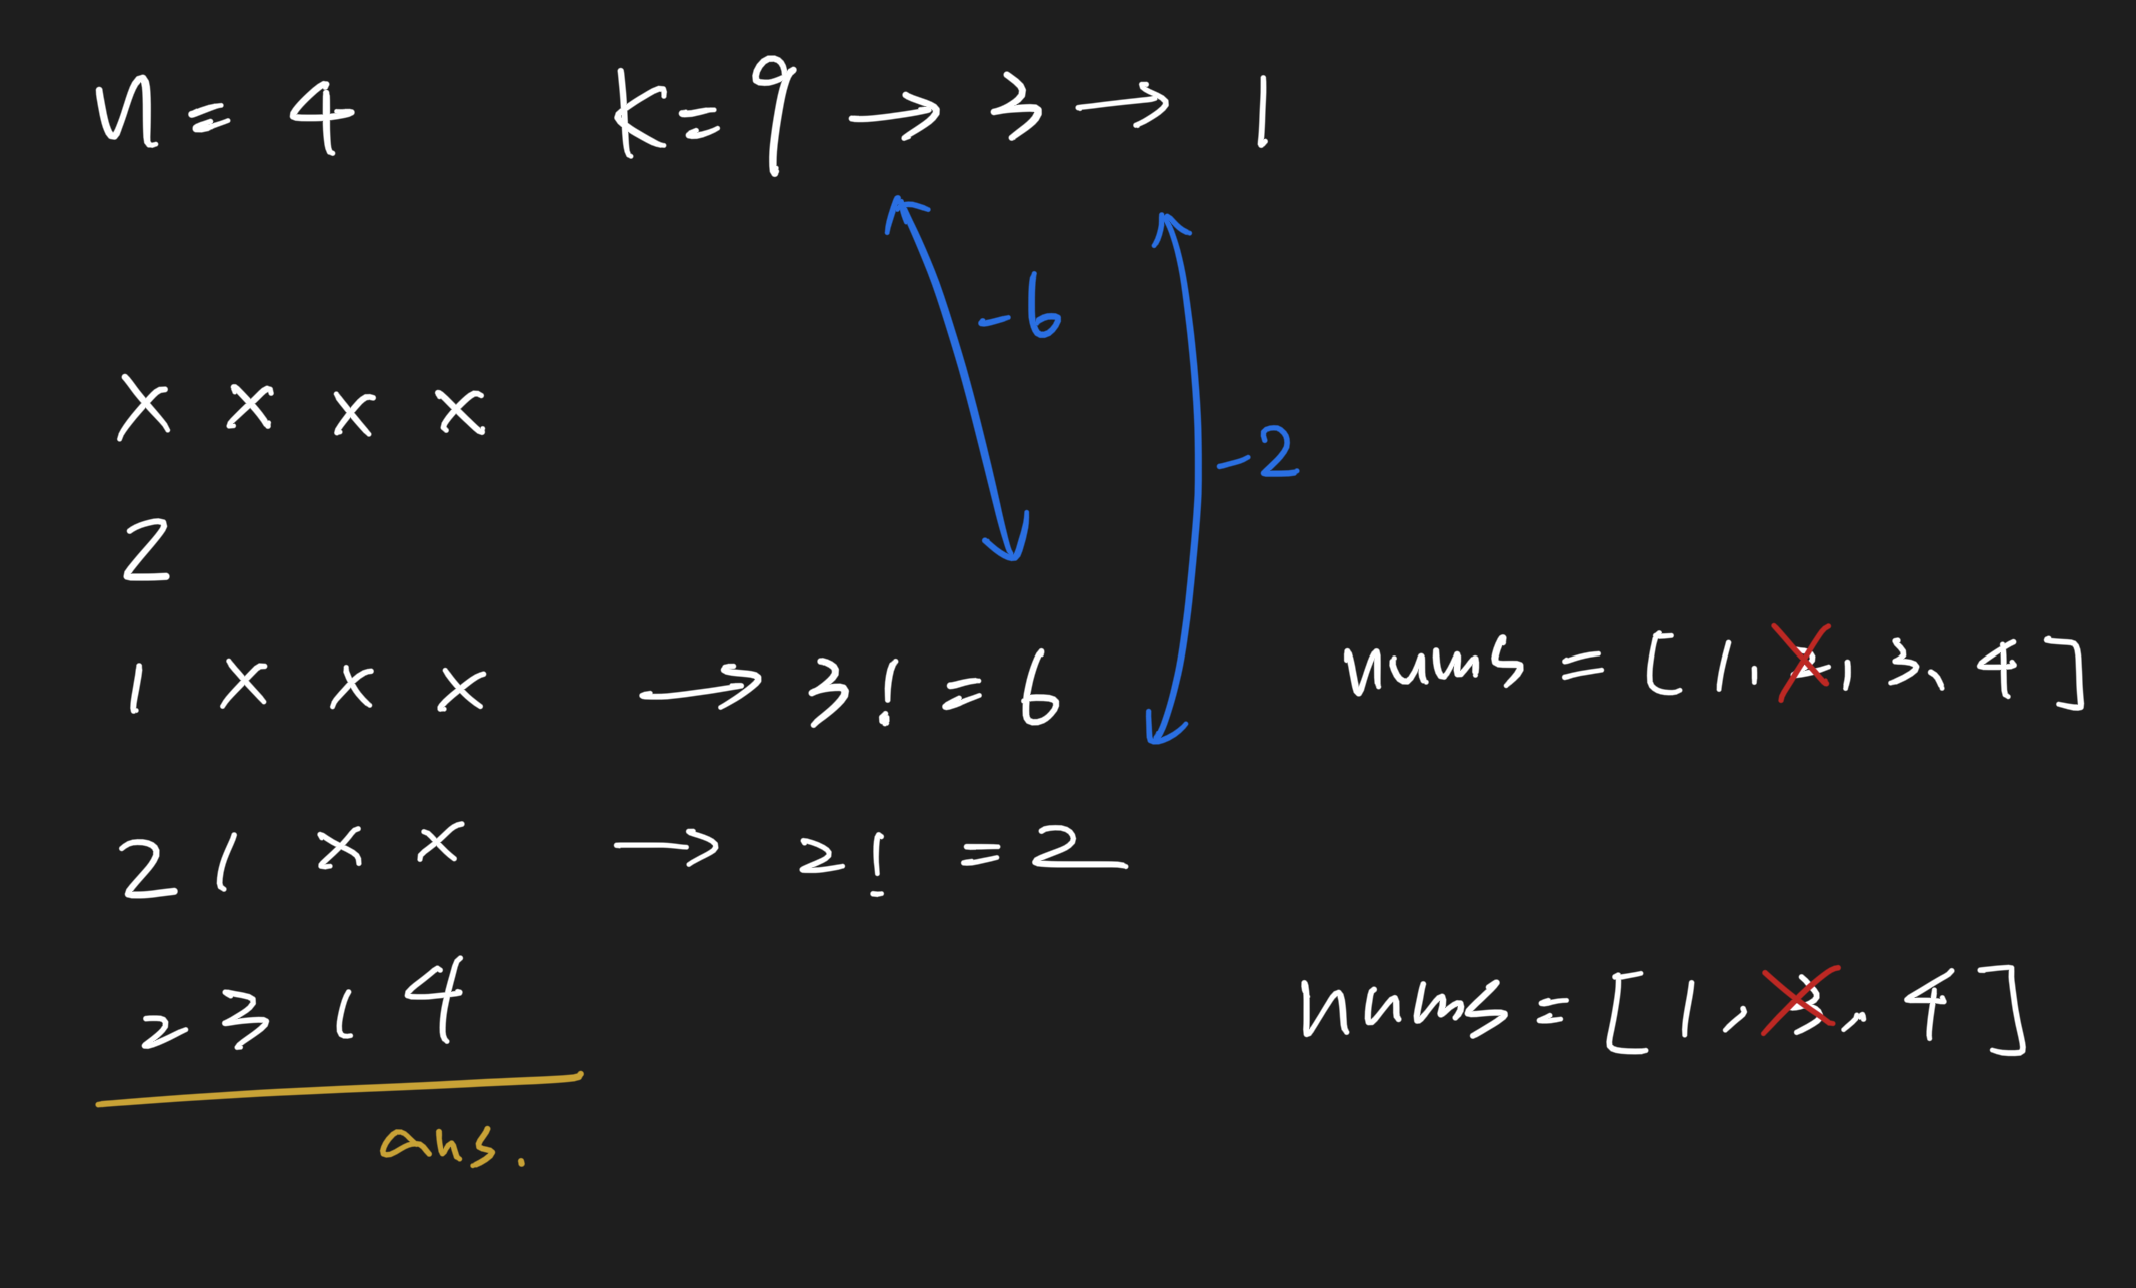 n = 4 k = 9 → 3 → 1
-6
x x x x
-2
2
1 x x x → 3! = 6 nums = [1, 2, 3, 4]
2 1 x x → 2! = 2
2 3 1 4 nums = [1, 3, 4]
ans.